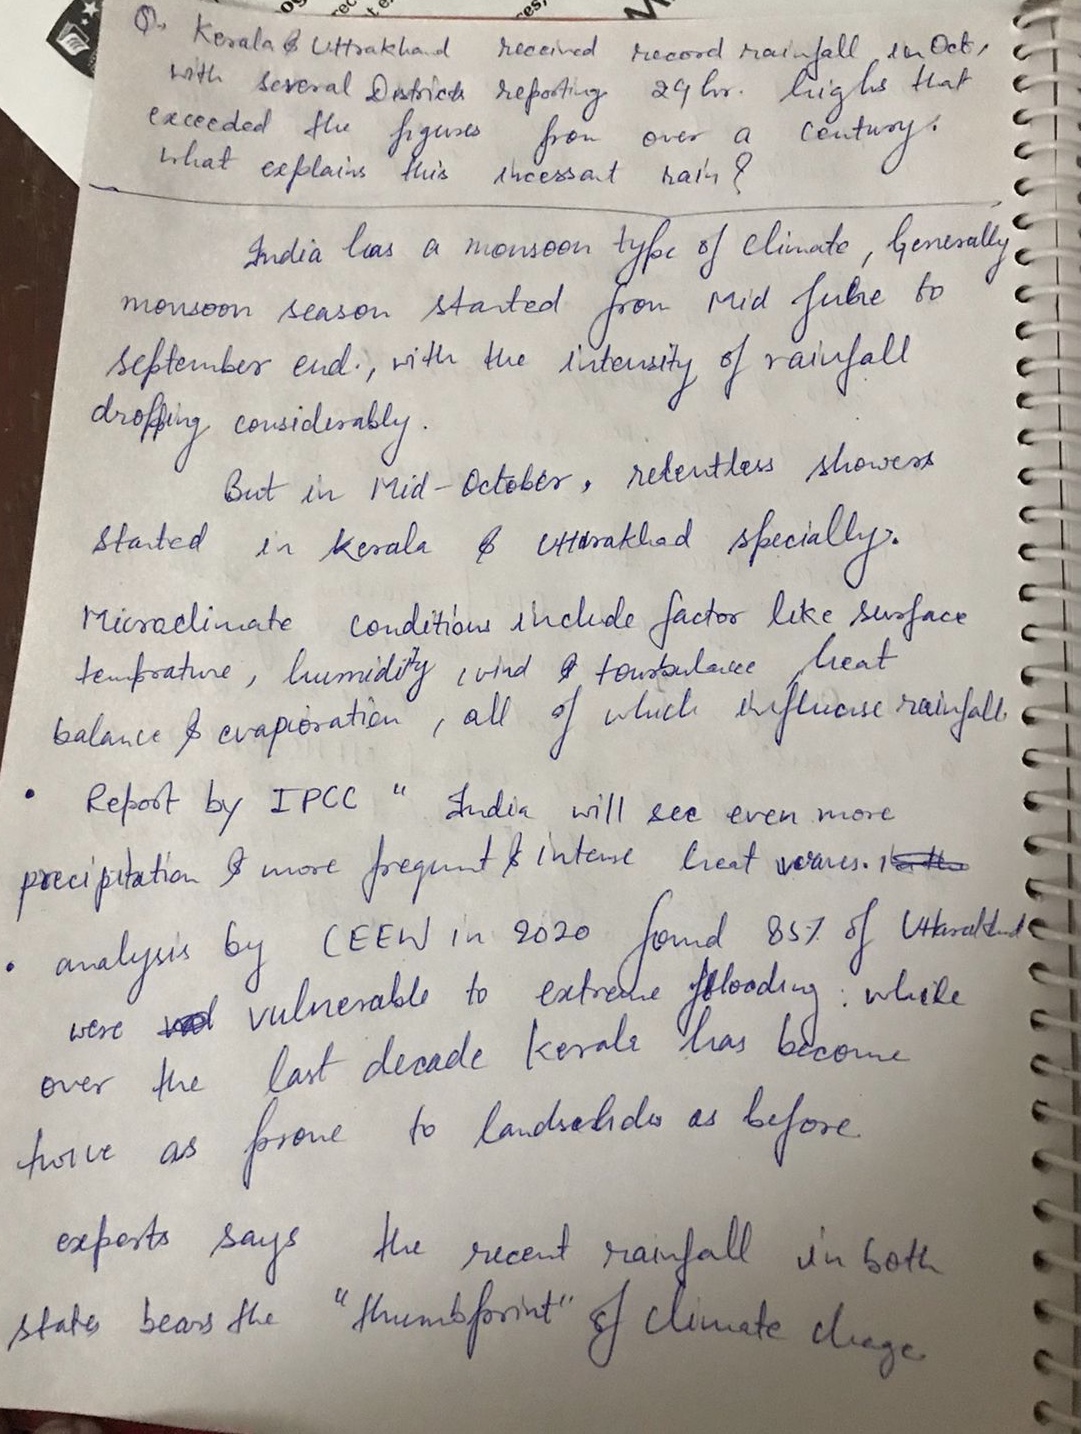 og
rec
t e
ces,
M
Q. Kerala & Uttrakhand received record rainfall in Oct,
with several Districts reporting 24 hr. highs that
exceeded the figures from over a century.
what explains this incessant rain?
India has a monsoon type of climate, Generally
monsoon season started from Mid June to
september end., with the intensity of rainfall
dropping considerably.
But in Mid-October, relentless showers
started in Kerala & Uttrakhad specially.
Microclimate conditions include factor like surface
temprature, humidity, wind & tourbulance, heat
balance & evapioration, all of which influcise rainfall.
• Report by IPCC " India will see even more
precipitation & more frequnt & intense heat waves.
• analysis by CEEW in 2020 found 85% of Uttarakhand
were vulnerable to extreme flooding : while
over the last decade Kerala has become
twice as prone to landselides as before
experts says the recent rainfall in both
states bears the "thumbprint" of climate chage